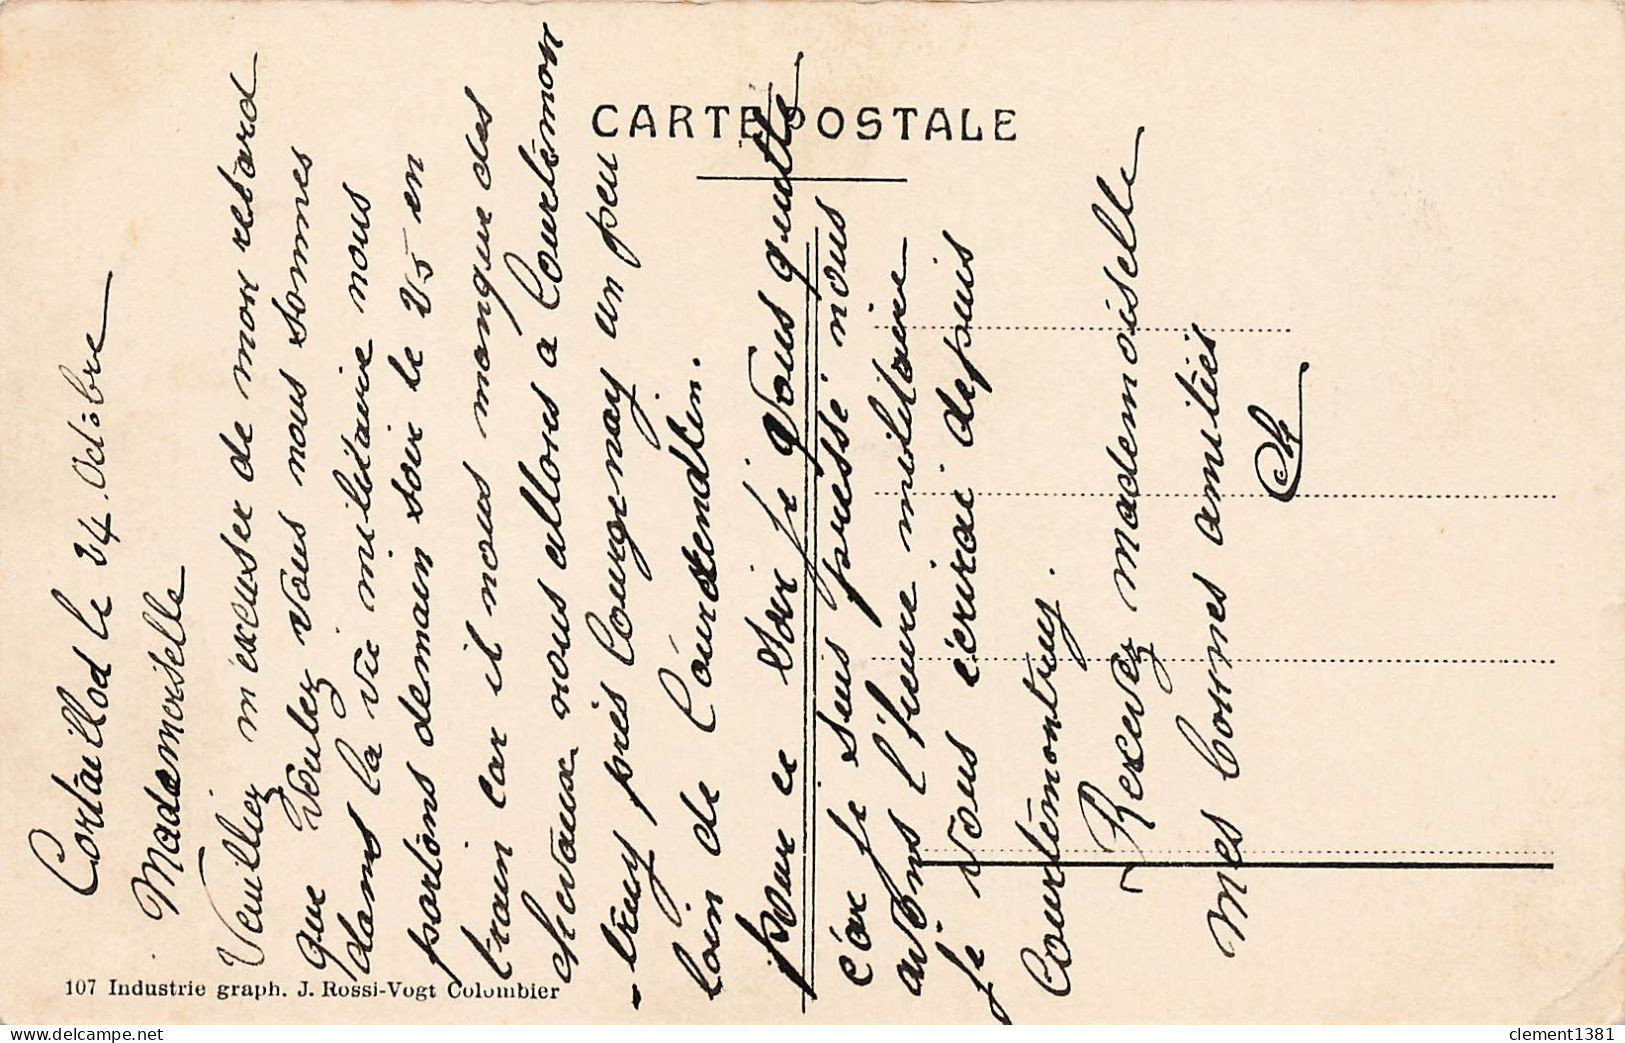 CARTE POSTALE
Cortaillod le 24 Octobre
Mademoiselle
Veuilliez m'excuser de mon retard
que voulez vous nous sommes
dans la vie militaire nous
partons demain soir le 25 en
train car il nous manque des
chevaux nous allons a Courtémon
-truy près Courgenay un peu
loin de Courrendlin.
pour ce soir je vous quitte
car je suis pressé nous
avons l'heure militaire
je vous écrirai depuis
Courtémontruy.
Recevez mademoiselle
mes bonnes amitiés
107 Industrie graph. J. Rossi-Vogt Colombier
www.delcampe.net
clement1381